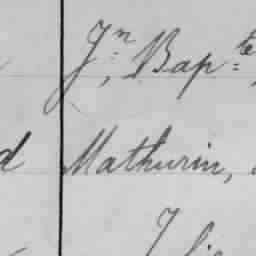 Jn, Bapte,
d Mathurin,